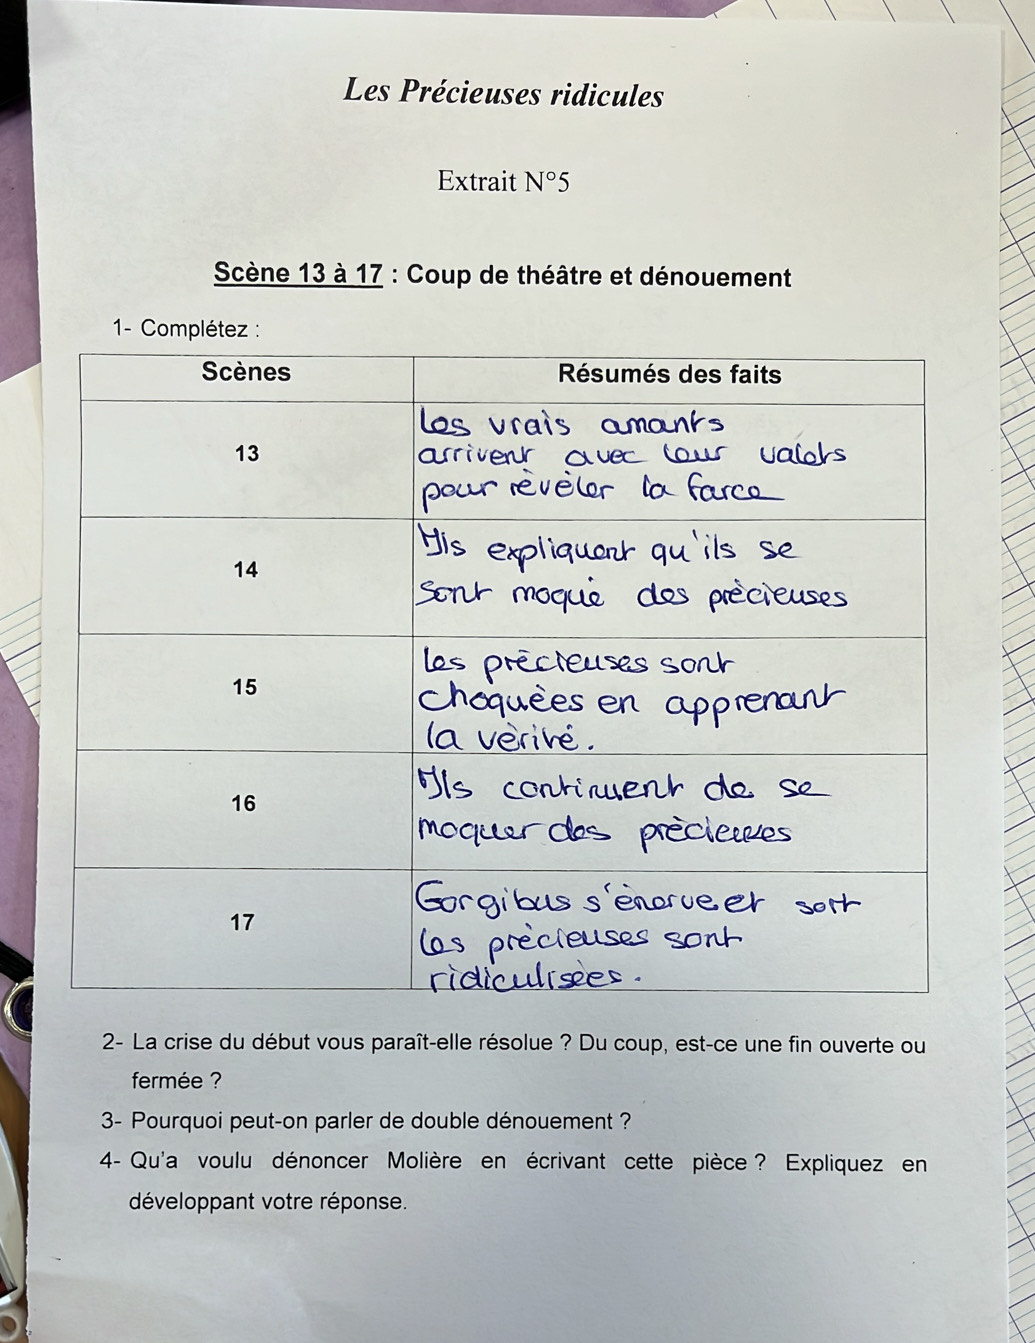 Les Précieuses ridicules
Extrait N°5
Scène 13 à 17 : Coup de théâtre et dénouement
1- Complétez :
Scènes
Résumés des faits
13
Les vrais amants
arrivent avec leur valets
pour révéler la farce
14
Ils expliquent qu'ils se
sont moqué des précieuses
15
Les précieuses sont
choquées en apprenant
la vérité.
16
Ils continuent de se
moquer des précieuses
17
Gorgibus s'énerve et sort
les précieuses sont
ridiculisées.
2- La crise du début vous paraît-elle résolue ? Du coup, est-ce une fin ouverte ou
fermée ?
3- Pourquoi peut-on parler de double dénouement ?
4- Qu'a voulu dénoncer Molière en écrivant cette pièce ? Expliquez en
développant votre réponse.